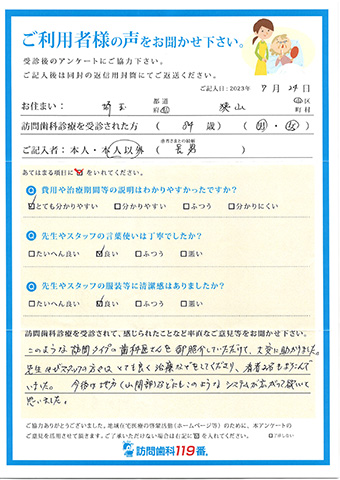 ご利用者様の声をお聞かせ下さい。
受診後のアンケートにご協力下さい。
ご記入後は同封の返信用封筒にてご返送ください。
ご記入日：2023年 7月 29日
お住まい： 埼玉 都道府県 狭山 市区町村
訪問歯科診療を受診された方（ 84 歳）（男・女）
ご記入者：本人・本人以外（ 長男 ）
あてはまる項目に☑をいれてください。
Q 費用や治療期間等の説明はわかりやすかったですか？
☑とても分かりやすい □分かりやすい □ふつう □分かりにくい
Q 先生やスタッフの言葉使いは丁寧でしたか？
□たいへん良い ☑良い □ふつう □悪い
Q 先生やスタッフの服装等に清潔感はありましたか？
□たいへん良い ☑良い □ふつう □悪い
訪問歯科診療を受診されて、感じられたことなど率直なご意見等をお聞かせ下さい。
このような訪問タイプの歯科医さんを御紹介していただけて、大変に助かりました。
先生はじめスタッフの方々は、とても良く治療などをしてくださり、
いました。今後は地方(山間部)などにもこのようなシステムが広がって欲しいと
思いました。
ご協力ありがとうございました。地域在宅医療の啓蒙活動(ホームページ等)のために、本アンケートの
ご意見を活用させて頂きます。ご了承いただけない場合は右記に☑を入れてください。 □了承しない
訪問歯科119番®